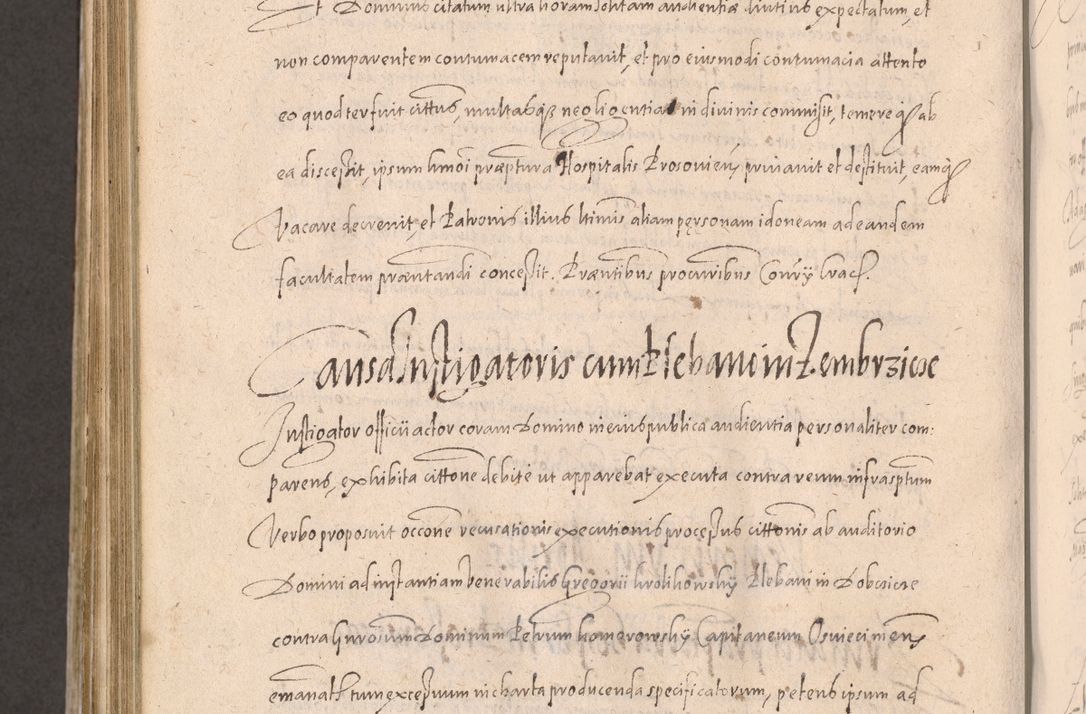 Et Dominus citatum ultra horam solitam audientiæ diutius expectatum, et
non comparentem contumacem reputavit, et pro eiusmodi contumacia attento
eo quod ter fuit cittus, multasq3 negligentias in divinis commisit, temereq3 ab
ea discessit, ipsum hmoi præptura Hospitalis Prosovien privavit et destituit, eamq3
Vacare decrevit, et Patronis illius ltimis aliam personam idoneam ad eandem
facultatem præntandi concessit. Præntibus procuribus Conrÿ Crac.
Causa Instigatoris cum Plebano in Zembrzicze
Instigator officii actor coram Domino in eius publica audientia personaliter com:
parens, exhibita cittone debite ut apparebat executa contra reum infrasptum
Verbo proposuit occone recusationis executionis processus cittonis ab auditorio
Domini ad instantiam Venerabilis Gregorii krolikowskÿ Plebani in Dobczicze
contra Gnrosum Dominum Petrum komorowskÿ Capitaneum Osviecimen
emanati tum excessuum in charta producenda specificatorum, petens ipsum ad